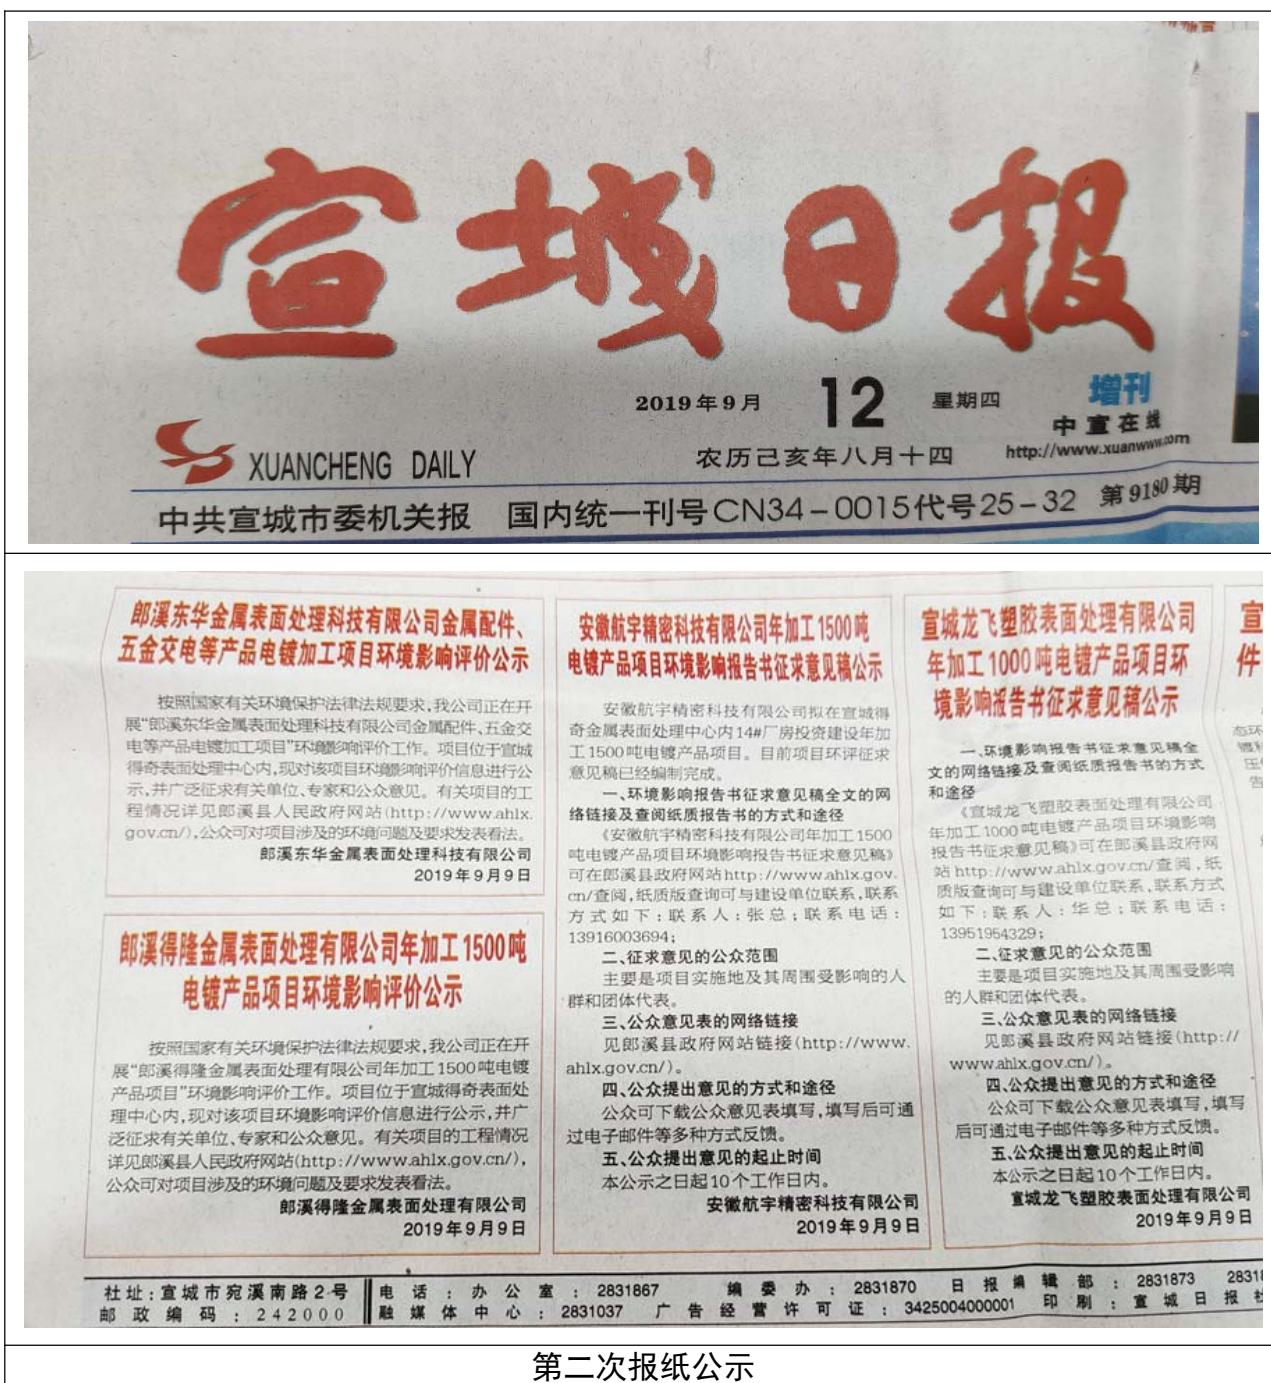 宣城日报
2019年9月 12 星期四 增刊
中宣在线
XUANCHENG DAILY 农历己亥年八月十四 http://www.xuanwww.com
中共宣城市委机关报 国内统一刊号CN34-0015代号25-32 第9180期
郎溪东华金属表面处理科技有限公司金属配件、
五金交电等产品电镀加工项目环境影响评价公示
按照国家有关环境保护法律法规要求,我公司正在开
展“郎溪东华金属表面处理科技有限公司金属配件、五金交
电等产品电镀加工项目”环境影响评价工作。项目位于宣城
得奇表面处理中心内,现对该项目环境影响评价信息进行公
示,并广泛征求有关单位、专家和公众意见。有关项目的工
程情况详见郎溪县人民政府网站(http://www.ahlx.
gov.cn/),公众可对项目涉及的环境问题及要求发表看法。
郎溪东华金属表面处理科技有限公司
2019年9月9日
郎溪得隆金属表面处理有限公司年加工1500吨
电镀产品项目环境影响评价公示
按照国家有关环境保护法律法规要求,我公司正在开
展“郎溪得隆金属表面处理有限公司年加工1500吨电镀
产品项目”环境影响评价工作。项目位于宣城得奇表面处
理中心内,现对该项目环境影响评价信息进行公示,并广
泛征求有关单位、专家和公众意见。有关项目的工程情况
详见郎溪县人民政府网站(http://www.ahlx.gov.cn/),
公众可对项目涉及的环境问题及要求发表看法。
郎溪得隆金属表面处理有限公司
2019年9月9日
安徽航宇精密科技有限公司年加工1500吨
电镀产品项目环境影响报告书征求意见稿公示
安徽航宇精密科技有限公司拟在宣城得
奇金属表面处理中心内14#厂房投资建设年加
工1500吨电镀产品项目。目前项目环评征求
意见稿已经编制完成。
一、环境影响报告书征求意见稿全文的网
络链接及查阅纸质报告书的方式和途径
《安徽航宇精密科技有限公司年加工1500
吨电镀产品项目环境影响报告书征求意见稿》
可在郎溪县政府网站http://www.ahlx.gov.
cn/查阅,纸质版查询可与建设单位联系,联系
方式如下:联系人:张总;联系电话:
13916003694;
二、征求意见的公众范围
主要是项目实施地及其周围受影响的人
群和团体代表。
三、公众意见表的网络链接
见郎溪县政府网站链接(http://www.
ahlx.gov.cn/)。
四、公众提出意见的方式和途径
公众可下载公众意见表填写,填写后可通
过电子邮件等多种方式反馈。
五、公众提出意见的起止时间
本公示之日起10个工作日内。
安徽航宇精密科技有限公司
2019年9月9日
宣城龙飞塑胶表面处理有限公司
年加工1000吨电镀产品项目环
境影响报告书征求意见稿公示
一、环境影响报告书征求意见稿全
文的网络链接及查阅纸质报告书的方式
和途径
《宣城龙飞塑胶表面处理有限公司
年加工1000吨电镀产品项目环境影响
报告书征求意见稿》可在郎溪县政府网
站http://www.ahlx.gov.cn/查阅,纸
质版查询可与建设单位联系,联系方式
如下:联系人:华总;联系电话:
13951954329;
二、征求意见的公众范围
主要是项目实施地及其周围受影响
的人群和团体代表。
三、公众意见表的网络链接
见郎溪县政府网站链接(http://
www.ahlx.gov.cn/)。
四、公众提出意见的方式和途径
公众可下载公众意见表填写,填写
后可通过电子邮件等多种方式反馈。
五、公众提出意见的起止时间
本公示之日起10个工作日内。
宣城龙飞塑胶表面处理有限公司
2019年9月9日
宣
件
社址:宣城市宛溪南路2号 电话:办公室:2831867 编委办:2831870 日报编辑部:2831873 2831
邮政编码:242000 融媒体中心:2831037 广告经营许可证:3425004000001 印刷:宣城日报社
第二次报纸公示